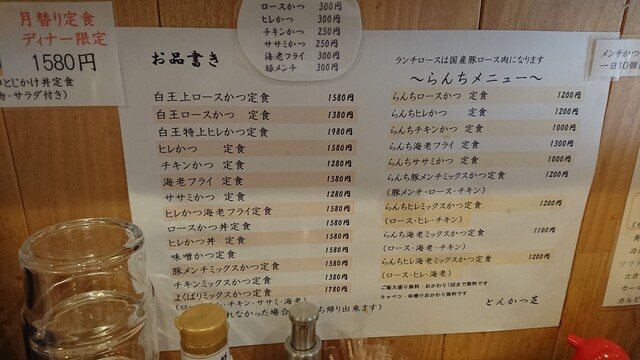 月替り定食
ディナー限定
1580円
とじかけ丼定食
物・サラダ付き)
ロースかつ 300円
ヒレかつ 300円
チキンかつ 250円
ササミかつ 250円
海老フライ 300円
豚メンチ 300円
お品書き
白王上ロースかつ定食 1580円
白王ロースかつ 定食 1380円
白王特上ヒレかつ定食 1980円
ヒレかつ 定食 1580円
チキンかつ 定食 1280円
海老フライ 定食 1580円
ササミかつ 定食 1280円
ヒレかつ海老フライ定食 1580円
ロースかつ丼 定食 1580円
ヒレかつ丼 定食 1580円
味噌かつ定食 1580円
豚メンチミックスかつ定食 1580円
チキンミックスかつ定食 1380円
よくばりミックスかつ定食 1780円
チキン・ササミ・海老)
れなかった場合
ち帰り出来ます)
ランチロースは国産豚ロース肉になります
～らんちメニュー～
らんちロースかつ 定食 1200円
らんちヒレかつ 定食 1200円
らんちチキンかつ 定食 1000円
らんち海老フライ 定食 1300円
らんちササミかつ 定食 1000円
らんち豚メンチミックスかつ定食 1200円
(豚メンチ・ロース・チキン)
らんちヒレミックスかつ定食 1200円
(ロース・ヒレ・チキン)
らんち海老ミックスかつ定食 1100円
(ロース・海老・チキン)
らんちヒレ海老ミックスかつ定食 1200円
(ロース・ヒレ・海老)
ご飯大盛り無料・おかわり1回まで無料です
キャベツ・味噌汁おかわり無料です
とんかつ芝
メンチかつ
一日10個